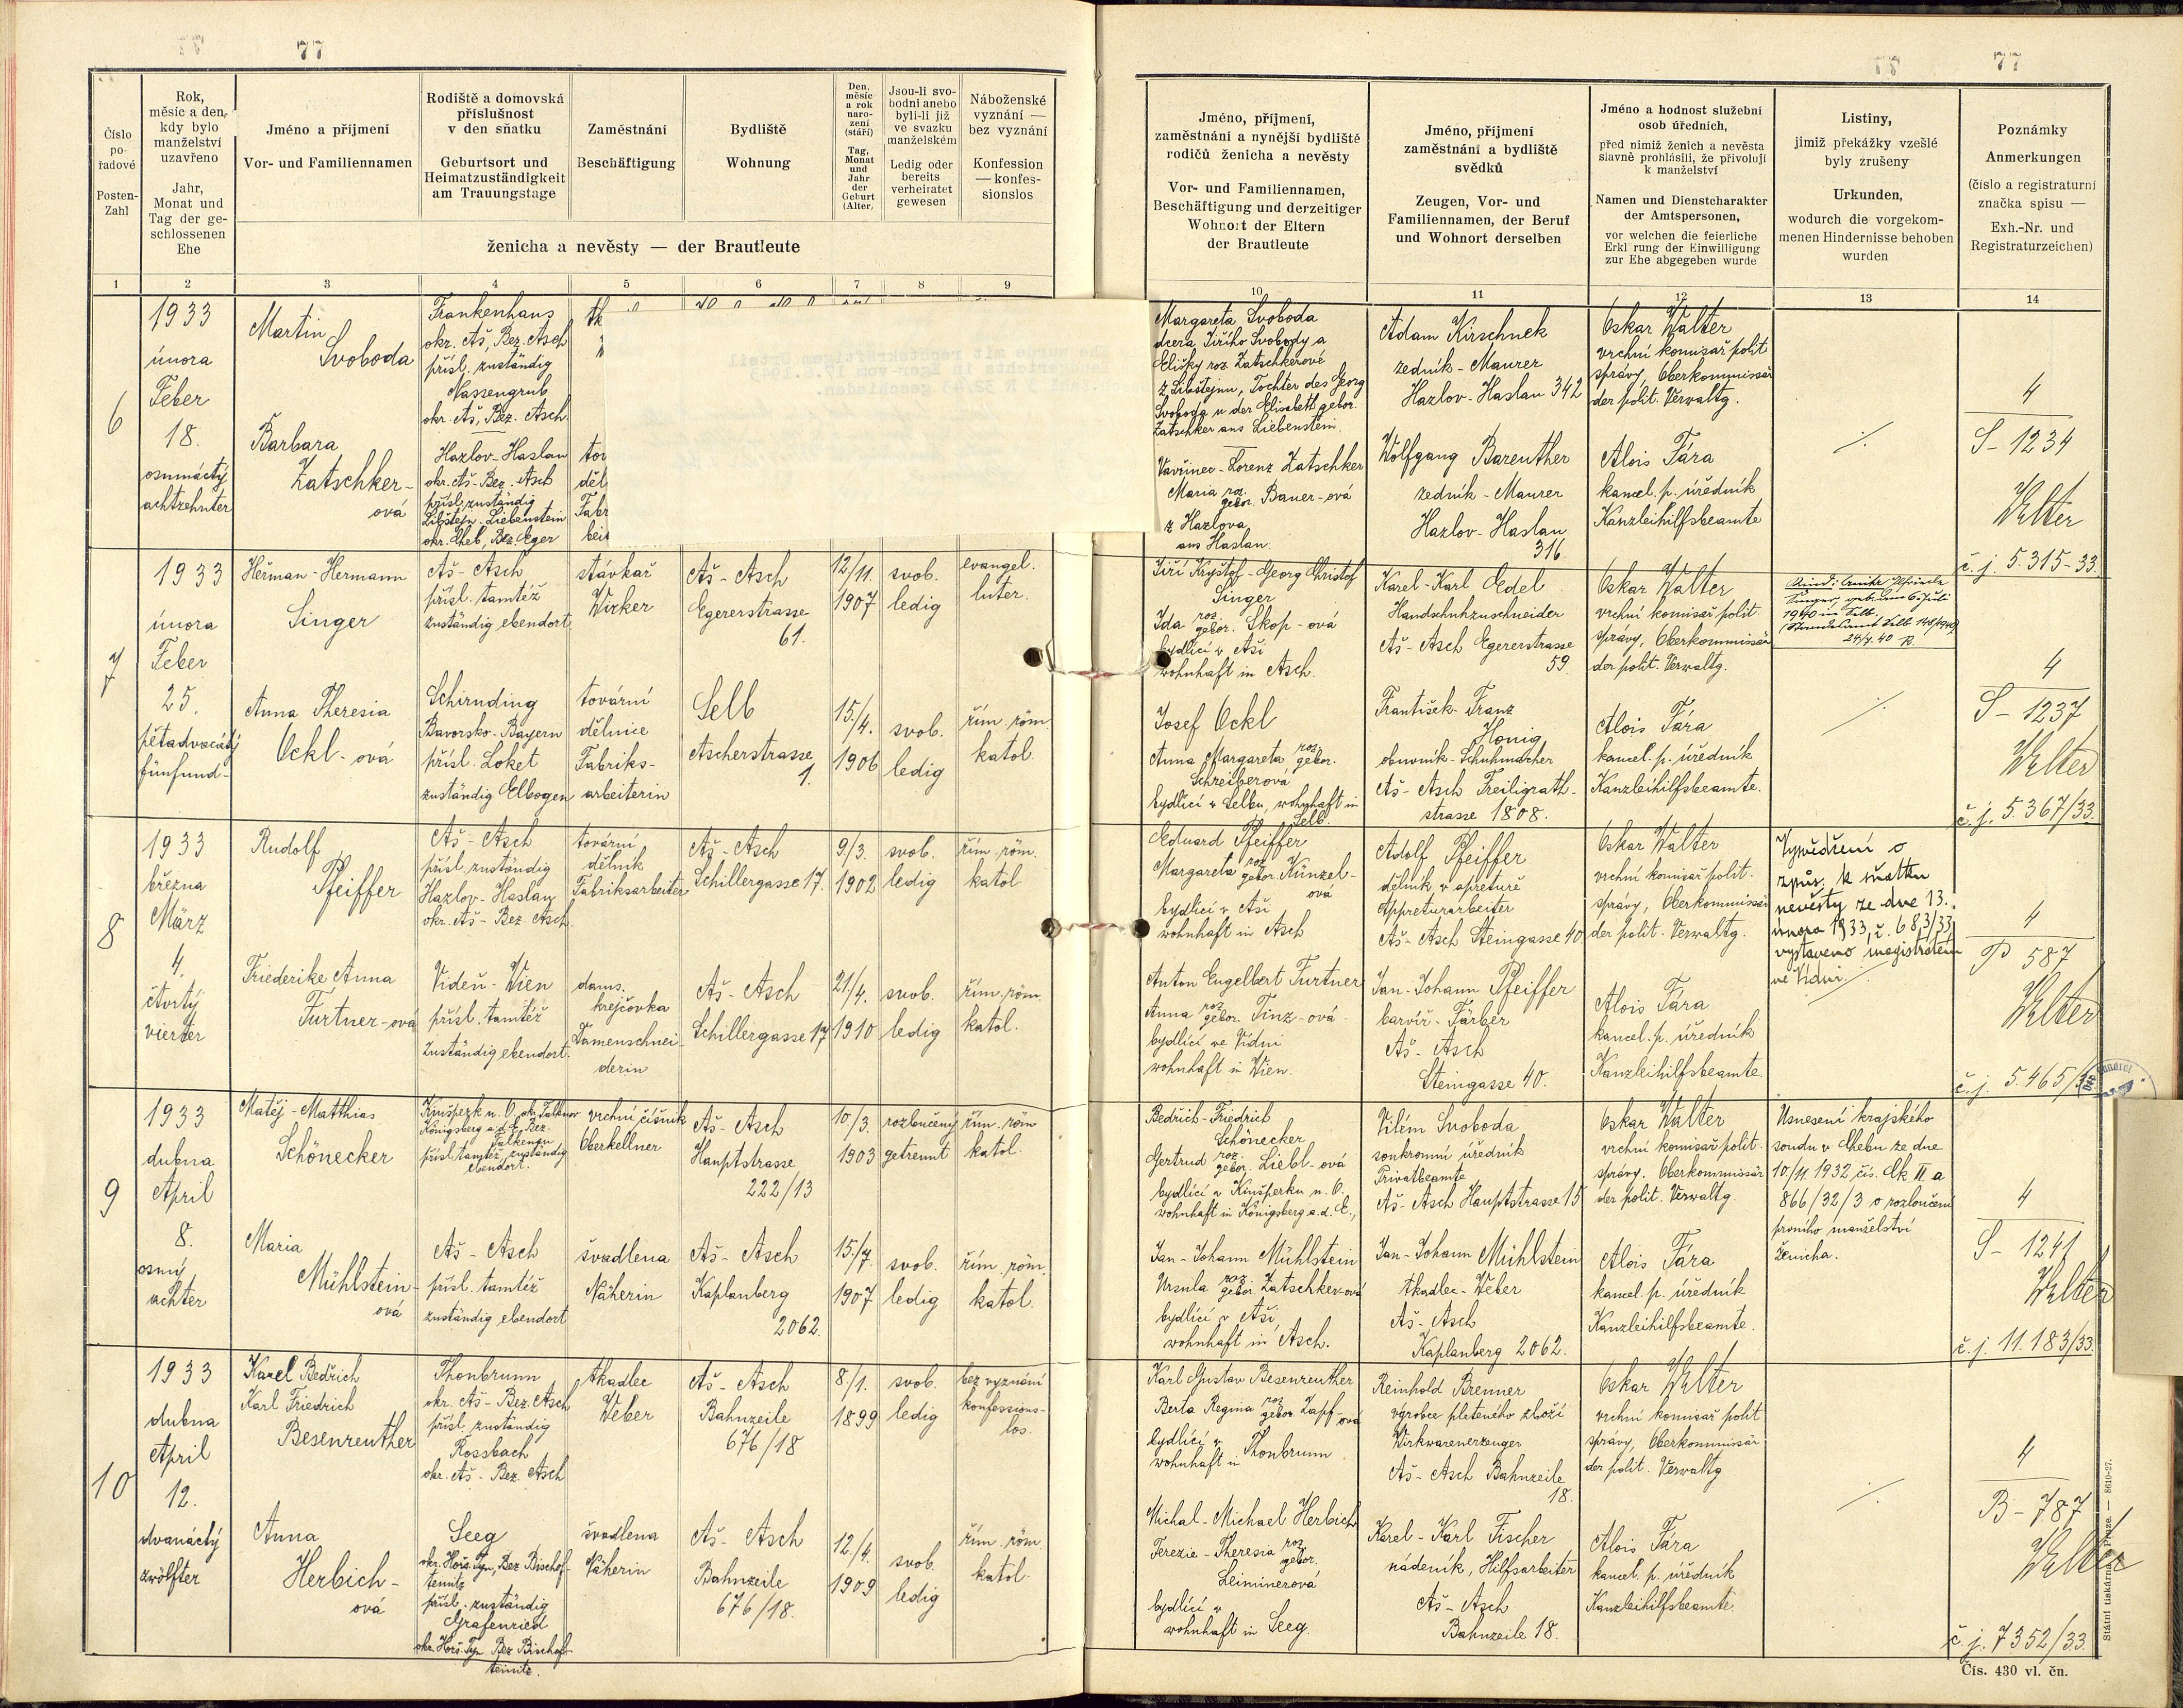 77
77
Číslo pořadové
Posten-Zahl
Rok, měsíc a den, kdy bylo manželství uzavřeno
Jahr, Monat und Tag der geschlossenen Ehe
Jméno a příjmení
Vor- und Familiennamen
Rodiště a domovská příslušnost v den sňatku
Geburtsort und Heimatzuständigkeit am Trauungstage
Zaměstnání
Beschäftigung
Bydliště
Wohnung
Den, měsíc a rok narození (stáří)
Tag, Monat und Jahr der Geburt (Alter)
Jsou-li svobodni anebo byli-li již ve svazku manželském
Ledig oder bereits verheiratet gewesen
Náboženské vyznání — bez vyznání
Konfession — konfessionslos
ženicha a nevěsty — der Brautleute
Jméno, příjmení, zaměstnání a nynější bydliště rodičů ženicha a nevěsty
Vor- und Familiennamen, Beschäftigung und derzeitiger Wohnort der Eltern der Brautleute
Jméno, příjmení zaměstnání a bydliště svědků
Zeugen, Vor- und Familiennamen, der Beruf und Wohnort derselben
Jméno a hodnost služební osob úředních,
před nimiž ženich a nevěsta slavně prohlásili, že přivolují k manželství
Namen und Dienstcharakter der Amtspersonen,
vor welchen die feierliche Erkl rung der Einwilligung zur Ehe abgegeben wurde
Listiny,
jimiž překážky vzešlé byly zrušeny
Urkunden,
wodurch die vorgekommenen Hindernisse behoben wurden
Poznámky
Anmerkungen
(číslo a registraturní značka spisu —
Exh.-Nr. und Registraturzeichen)
1 2 3 4 5 6 7 8 9 10 11 12 13 14
6
1933
února
Feber
18.
osmnáctý
achtzehnter
Martin
Svoboda
Frankenhaus
okr. Aš, Bez. Asch
přísl. zuständig
Nassengrub
okr. Aš, Bez. Asch
Barbara
Zatschker-
ová
Hazlov-Haslau
okr. Aš-Bez. Asch
přísl. zuständig
Libštejn-Liebenstein
okr. Cheb, Bez. Eger
Margareta Svoboda
dcera Jiřího Svobody a
Elišky roz. Zatschkerové
z Libštejnu, Tochter des Georg
Svoboda u der Elisabeth gebor.
Zatschker aus Liebenstein.
Vavřinec-Lorenz Zatschker
Maria roz. gebor. Bauer-ová
z Hazlova
aus Haslau.
Adam Kirschnek
zedník-Maurer
Hazlov-Haslau 342
Wolfgang Bareuther
zedník-Maurer
Hazlov-Haslau
316.
Oskar Walter
vrchní komisař polit
správy, Oberkommissär
der polit. Verwaltg.
Alois Fára
kancel. p. úředník
Kanzleihilfsbeamte
4
S-1234
Walter
č. j. 5.315-33.
7
1933
února
Feber
25.
pětadvacátý
fünfund-
Heřman-Hermann
Singer
Aš-Asch
přísl. tamtéž
zuständig ebendort
stávkař
Wirker
Aš-Asch
Egererstrasse
61.
12/11.
1907
svob.
ledig
evangel.
luter.
Anna Theresia
Ockl-ová
Schirnding
Bavorsko-Bayern
přísl. Loket
zuständig Elbogen
tovární
dělnice
Fabriks-
arbeiterin
Selb
Ascherstrasse
1.
15./4.
1906
svob.
ledig
řím. röm.
katol.
Jiří Kryštof-Georg Christof
Singer
Ida roz. gebor. Skop-ová
bydlící v Aši
wohnhaft in Asch.
Josef Ockl
Anna Margareta roz. gebor.
Schreiberová
bydlící v Selbu, wohnhaft in
Selb.
Karel-Karl Edel
Handschuhzuschneider
Aš-Asch Egererstrasse
59.
František-Franz
Honig
obuvník-Schuhmacher
Aš-Asch Freiligrath-
strasse 1808.
Oskar Walter
vrchní komisař polit.
správy, Oberkommissär
der polit. Verwaltg.
Alois Fára
kancel. p. úředník
Kanzleihilfsbeamte.
1940 in Selb.
4
S-1237
Walter
č. j. 5.367/33.
8
1933
března
März
4.
čtvrtý
vierter
Rudolf
Pfeiffer
Aš-Asch
přísl. zuständig
Hazlov-Haslau
okr. Aš-Bez. Asch
tovární
dělník
Fabriksarbeiter
Aš-Asch
Schillergasse 17.
9/3.
1902
svob.
ledig
řím. röm.
katol.
Friederike Anna
Furtner-ová
Vídeň-Wien
přísl. tamtéž
zuständig ebendort.
dams.
krejčovka
Damenschnei-
derin
Aš-Asch
Schillergasse 17
21/4.
1910
svob.
ledig
řím. röm.
katol.
Eduard Pfeiffer
Margareta roz. gebor. Künzel-
ová
bydlící v Aši
wohnhaft in Asch
Anton Engelbert Furtner
Anna roz. gebor. Tinz-ová
bydlící ve Vídni
wohnhaft in Wien.
Adolf Pfeiffer
dělník v apretuře
Appreturarbeiter
Aš-Asch Steingasse 40.
Jan-Johann Pfeiffer
barvíř-Färber
Aš-Asch
Steingasse 40.
Oskar Walter
vrchní komisař polit.
správy, Oberkommissär
der polit. Verwaltg.
Alois Fára
kancel. p. úředník
Kanzleihilfsbeamte.
Vysvědčení o
způs. k sňatku
nevěsty ze dne 13.
února 1933, č. 683/33,
vystaveno magistrátem
ve Vídni
4
P 587
Walter
č. j. 5.465/3
9
1933
dubna
April
8.
osmý
achter
Matěj-Matthias
Schönecker
Kinšperk n. O. okr. Falknov
Königsberg a.d. E. Bez.
Falkenau
přísl. tamtéž, zuständig
ebendort.
vrchní číšník
Oberkellner
Aš-Asch
Hauptstrasse
222/13
10/3.
1903
rozloučený
getrennt
řím. röm
katol.
Maria
Mühlstein-
ová
Aš-Asch
přísl. tamtéž
zuständig ebendort
švadlena
Näherin
Aš-Asch
Kaplanberg
2062.
15./7.
1907
svob.
ledig
řím. röm.
katol.
Bedřich-Friedrich
Schönecker
Gertrud roz. gebor. Liebl-ová
bydlící v Kinšperku n. O.
wohnhaft in Königsberg a.d. E.,
Jan-Johann Mühlstein
Ursula roz. gebor. Zatschker-ová
bydlící v Aši,
wohnhaft in Asch.
Vilém Svoboda
soukromní úředník
Privatbeamte
Aš-Asch Hauptstrasse 15
Jan-Johann Mühlstein
tkadlec-Weber
Aš-Asch
Kaplanberg 2062.
Oskar Walter
vrchní komisař polit.
správy. Oberkommissär
der polit. Verwaltg.
Alois Fára
kancel. p. úředník
Kanzleihilfsbeamte.
Usnesení krajského
soudu v Chebu ze dne
10./11. 1932 čís. Ck II a
866/32/3 o rozloučení
prvního manželství
ženicha.
4
S-1241
Walter
č. j. 11.183/33.
10
1933
dubna
April
12.
dvanáctý
zwölfter
Karel Bedřich
Karl Friedrich
Besenreuther
Thonbrunn
okr. Aš-Bez. Asch
přísl. zuständig
Rossbach
okr. Aš-Bez. Asch
tkadlec
Weber
Aš-Asch
Bahnzeile
676/18
8/1.
1899
svob.
ledig
bez vyznání
konfessions-
los.
Anna
Herbich-
ová
Seeg
okr. Horš. Týn, Bez Bischof-
teinitz
přísl. zuständig
Grafenried
okr. Horš. Týn. Bez Bischof-
teinitz.
švadlena
Näherin
Aš-Asch
Bahnzeile
676/18.
12./4.
1909
svob.
ledig
řím. röm.
katol.
Karl Gustav Besenreuther
Berta Regina roz. gebor. Zapf-ová
bydlící v
wohnhaft in Thonbrunn
Michal-Michael Herbich
Terezie-Theresia roz. gebor.
Leiminerová
bydlící v
wohnhaft in Seeg.
Reinhold Brenner
výrobce pleteného zboží
Wirkwarenerzeuger
Aš-Asch Bahnzeile
18.
Karel-Karl Fischer
nádeník, Hilfsarbeiter
Aš-Asch
Bahnzeile 18.
Oskar Walter
vrchní komisař polit
správy, Oberkommissär
der polit. Verwaltg
Alois Fára
kancel. p. úředník
Kanzleihilfsbeamte.
4
B-787
Walter
č. j. 7352/33.
Čís. 430 vl. čn.